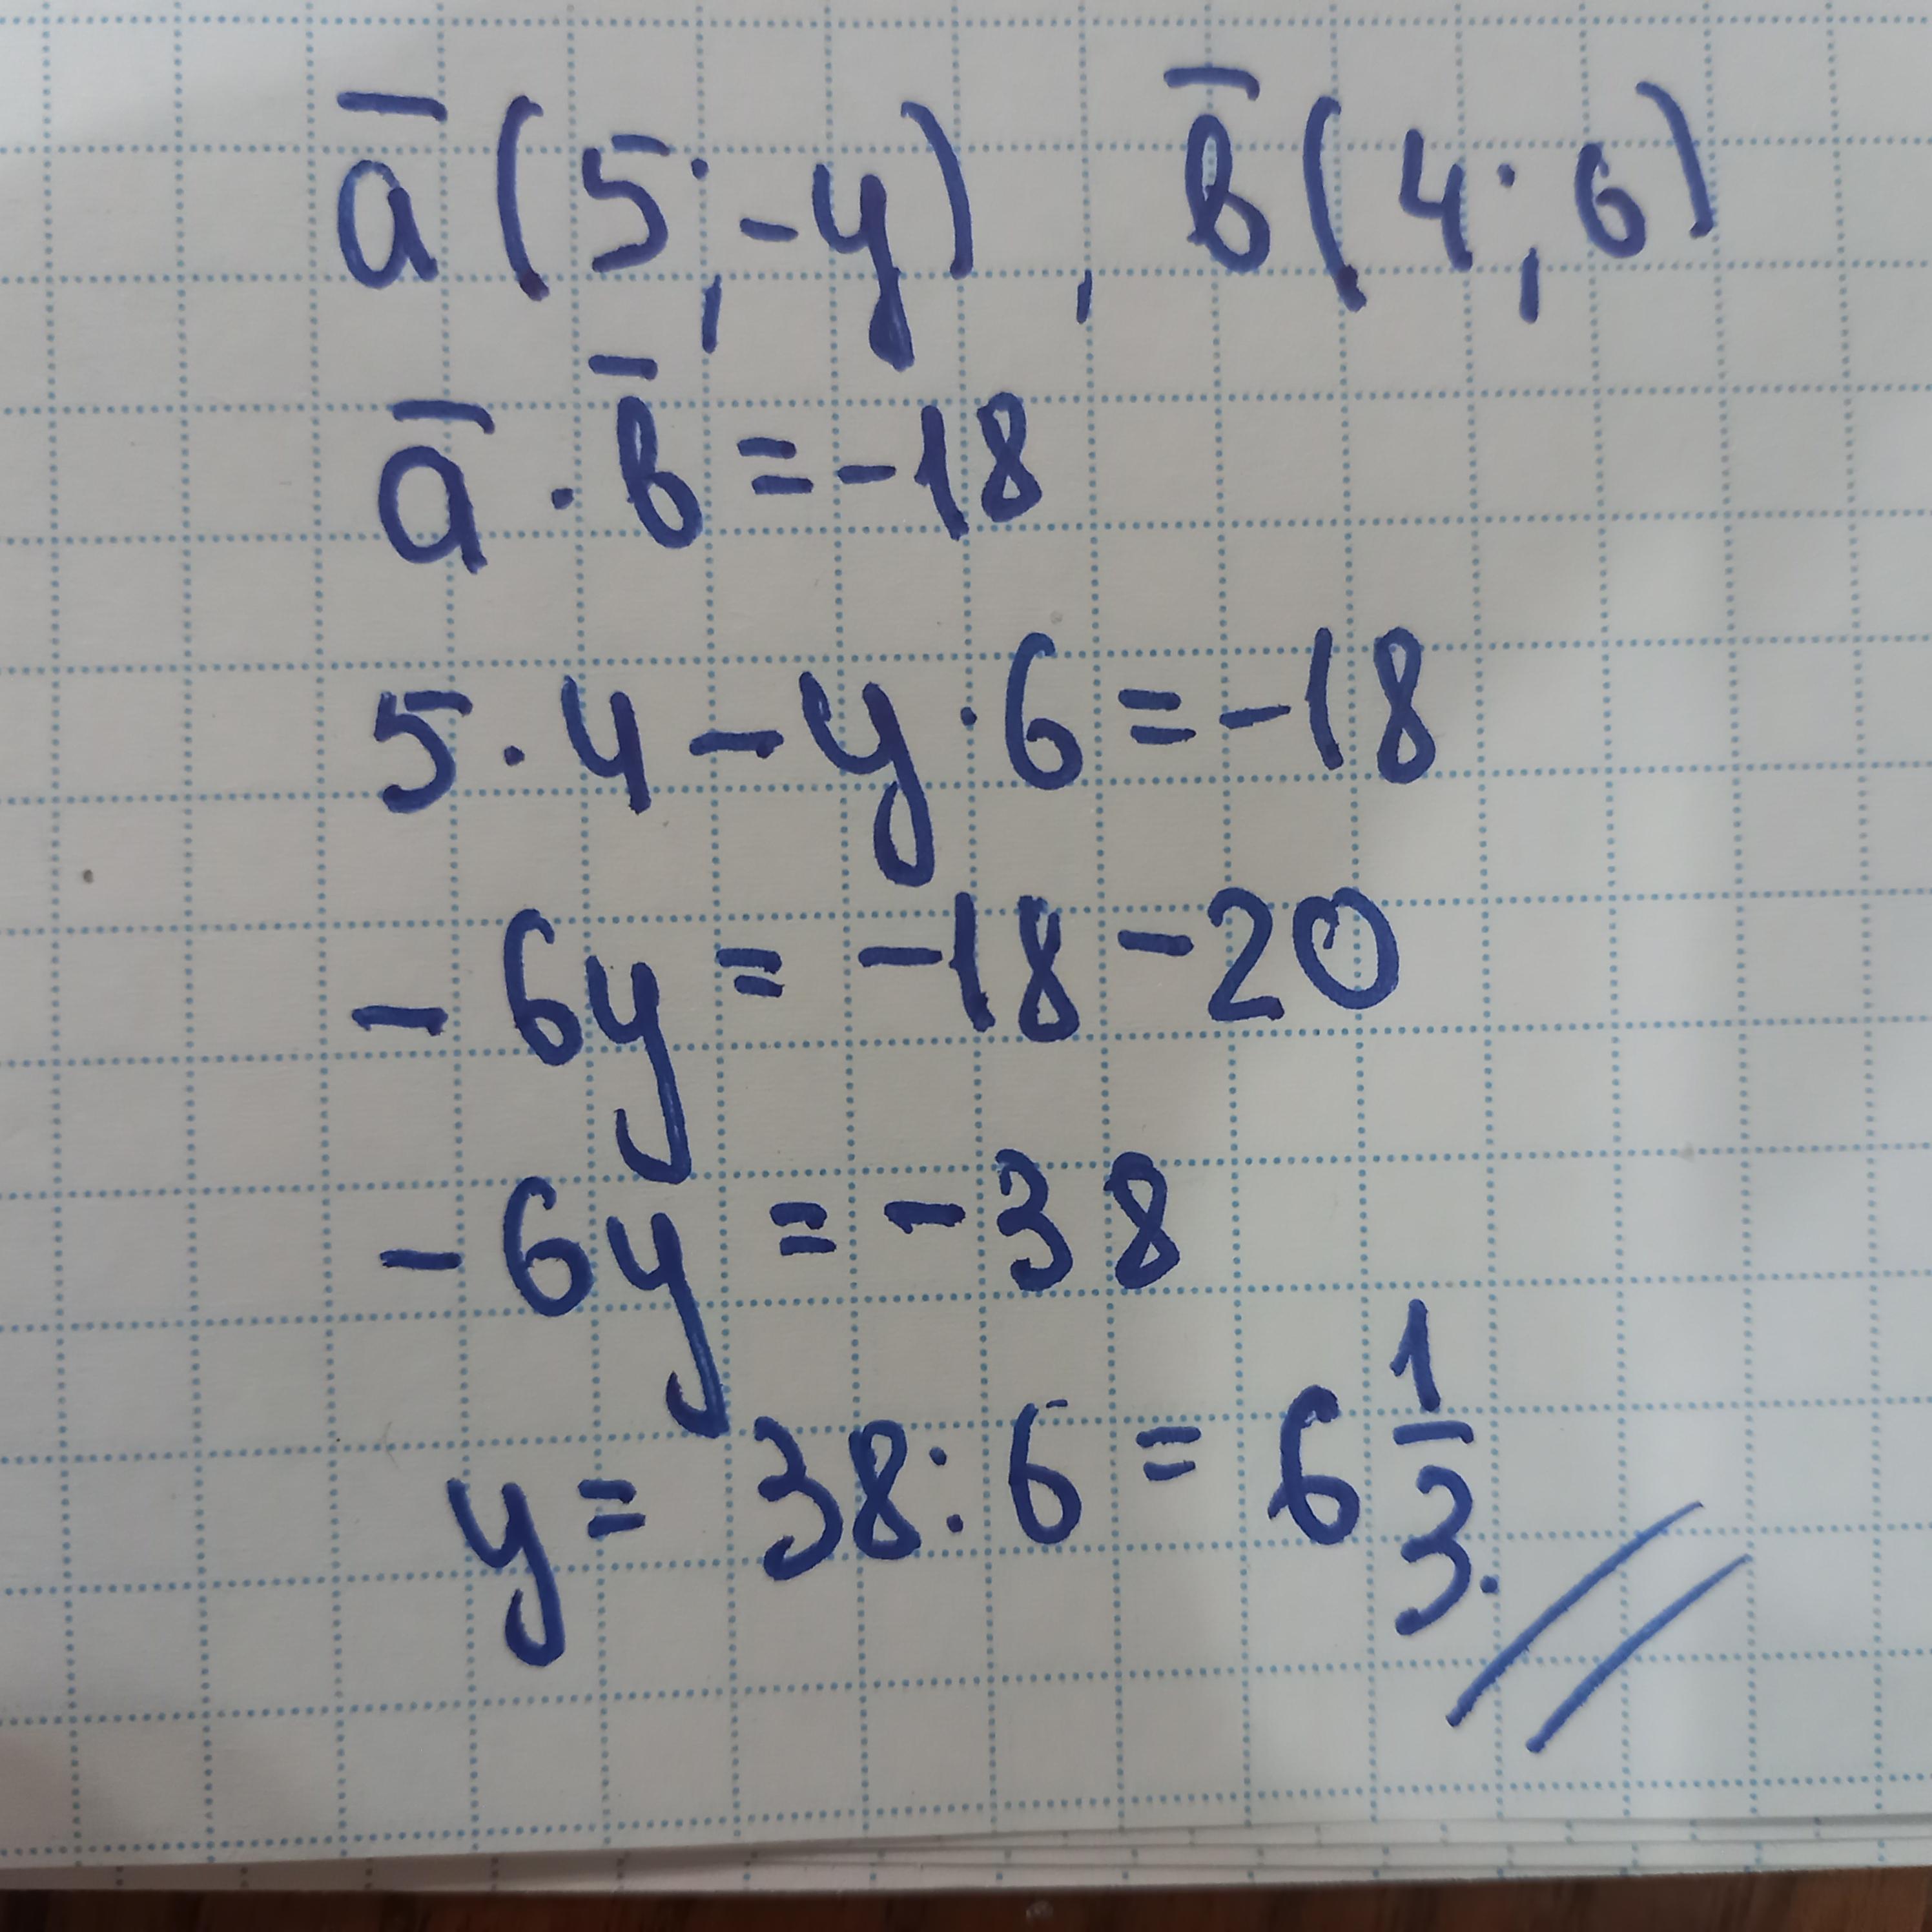 a̅ (5; -y), b̅ (4; 6)
a̅ · b̅ = -18
5 · 4 - y · 6 = -18
- 6y = -18 - 20
- 6y = - 38
y = 38 : 6 = 6 1/3.